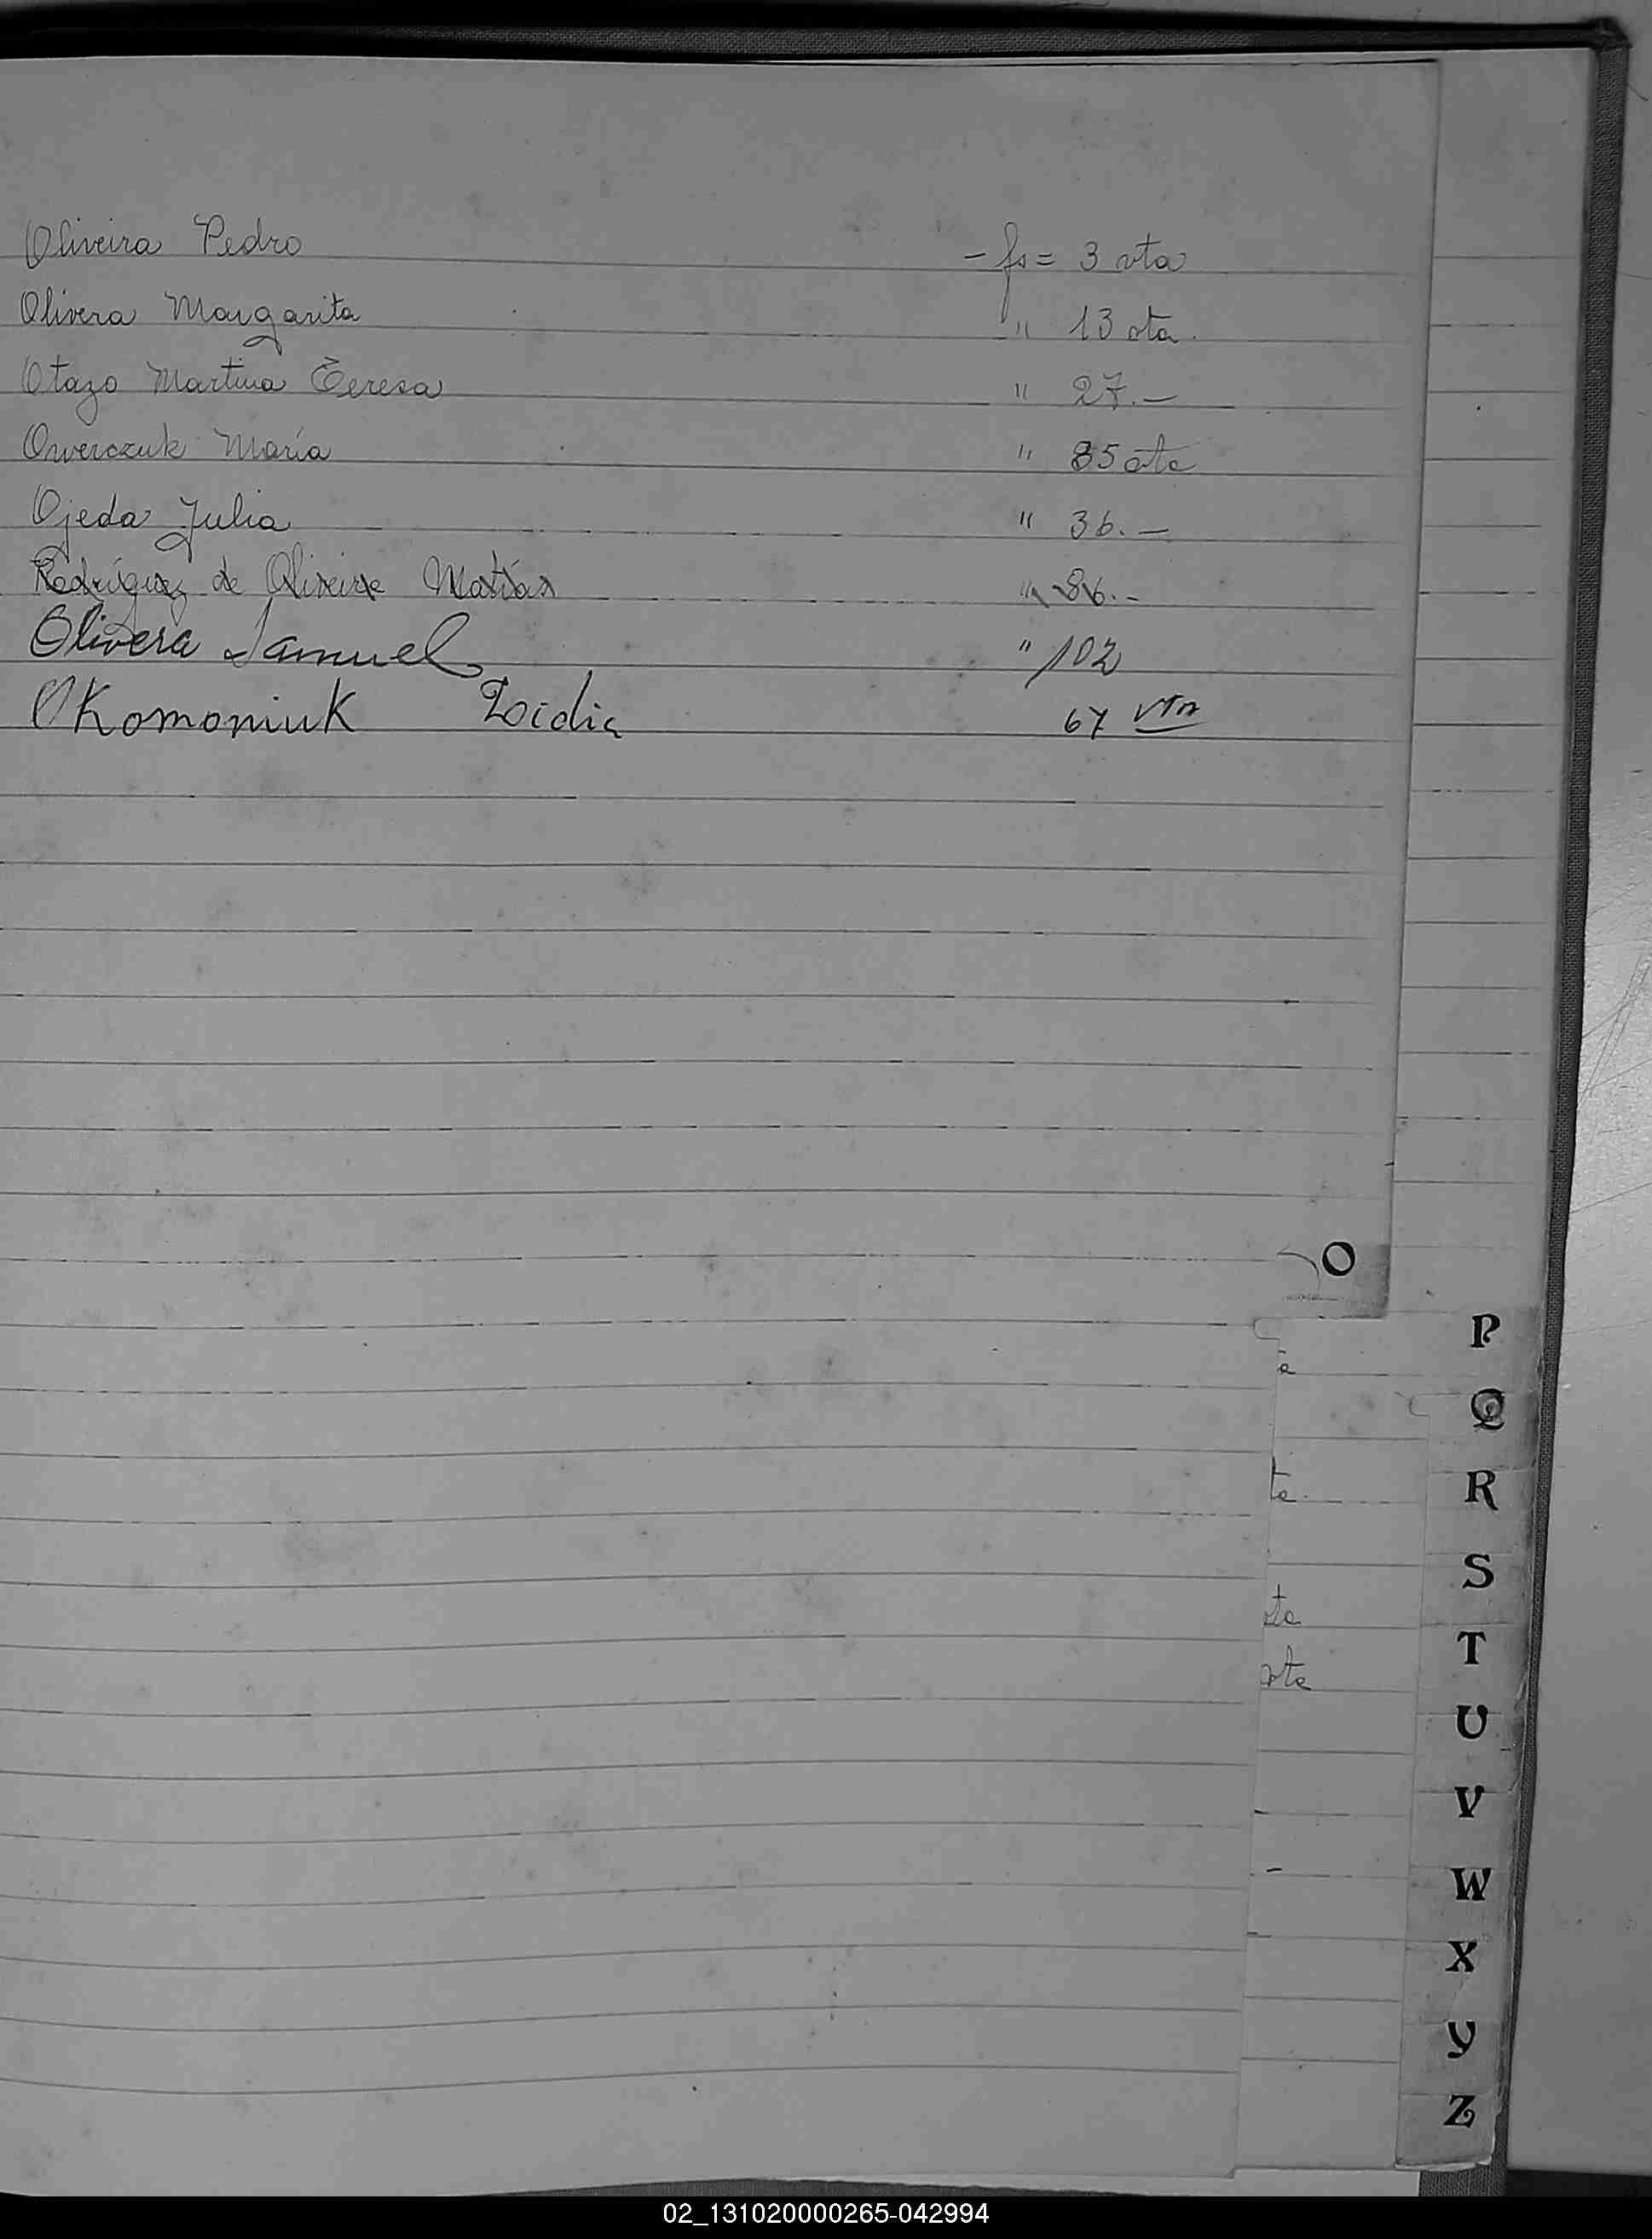 Oliveira Pedro - fs = 3 vta
Olivera Margarita " 13 vta.
Otazo Martina Teresa " 27.-
Owerczuk María " 35 vta
Ojeda Julia " 36.-
Rodríguez de Oliveira Matías " 86.-
Olivera Samuel " 102
OKomoniuk 67 vta
O
P
a
Q
te
R
S
vta
T
vta
U
V
W
X
Y
Z
02_131020000265-042994